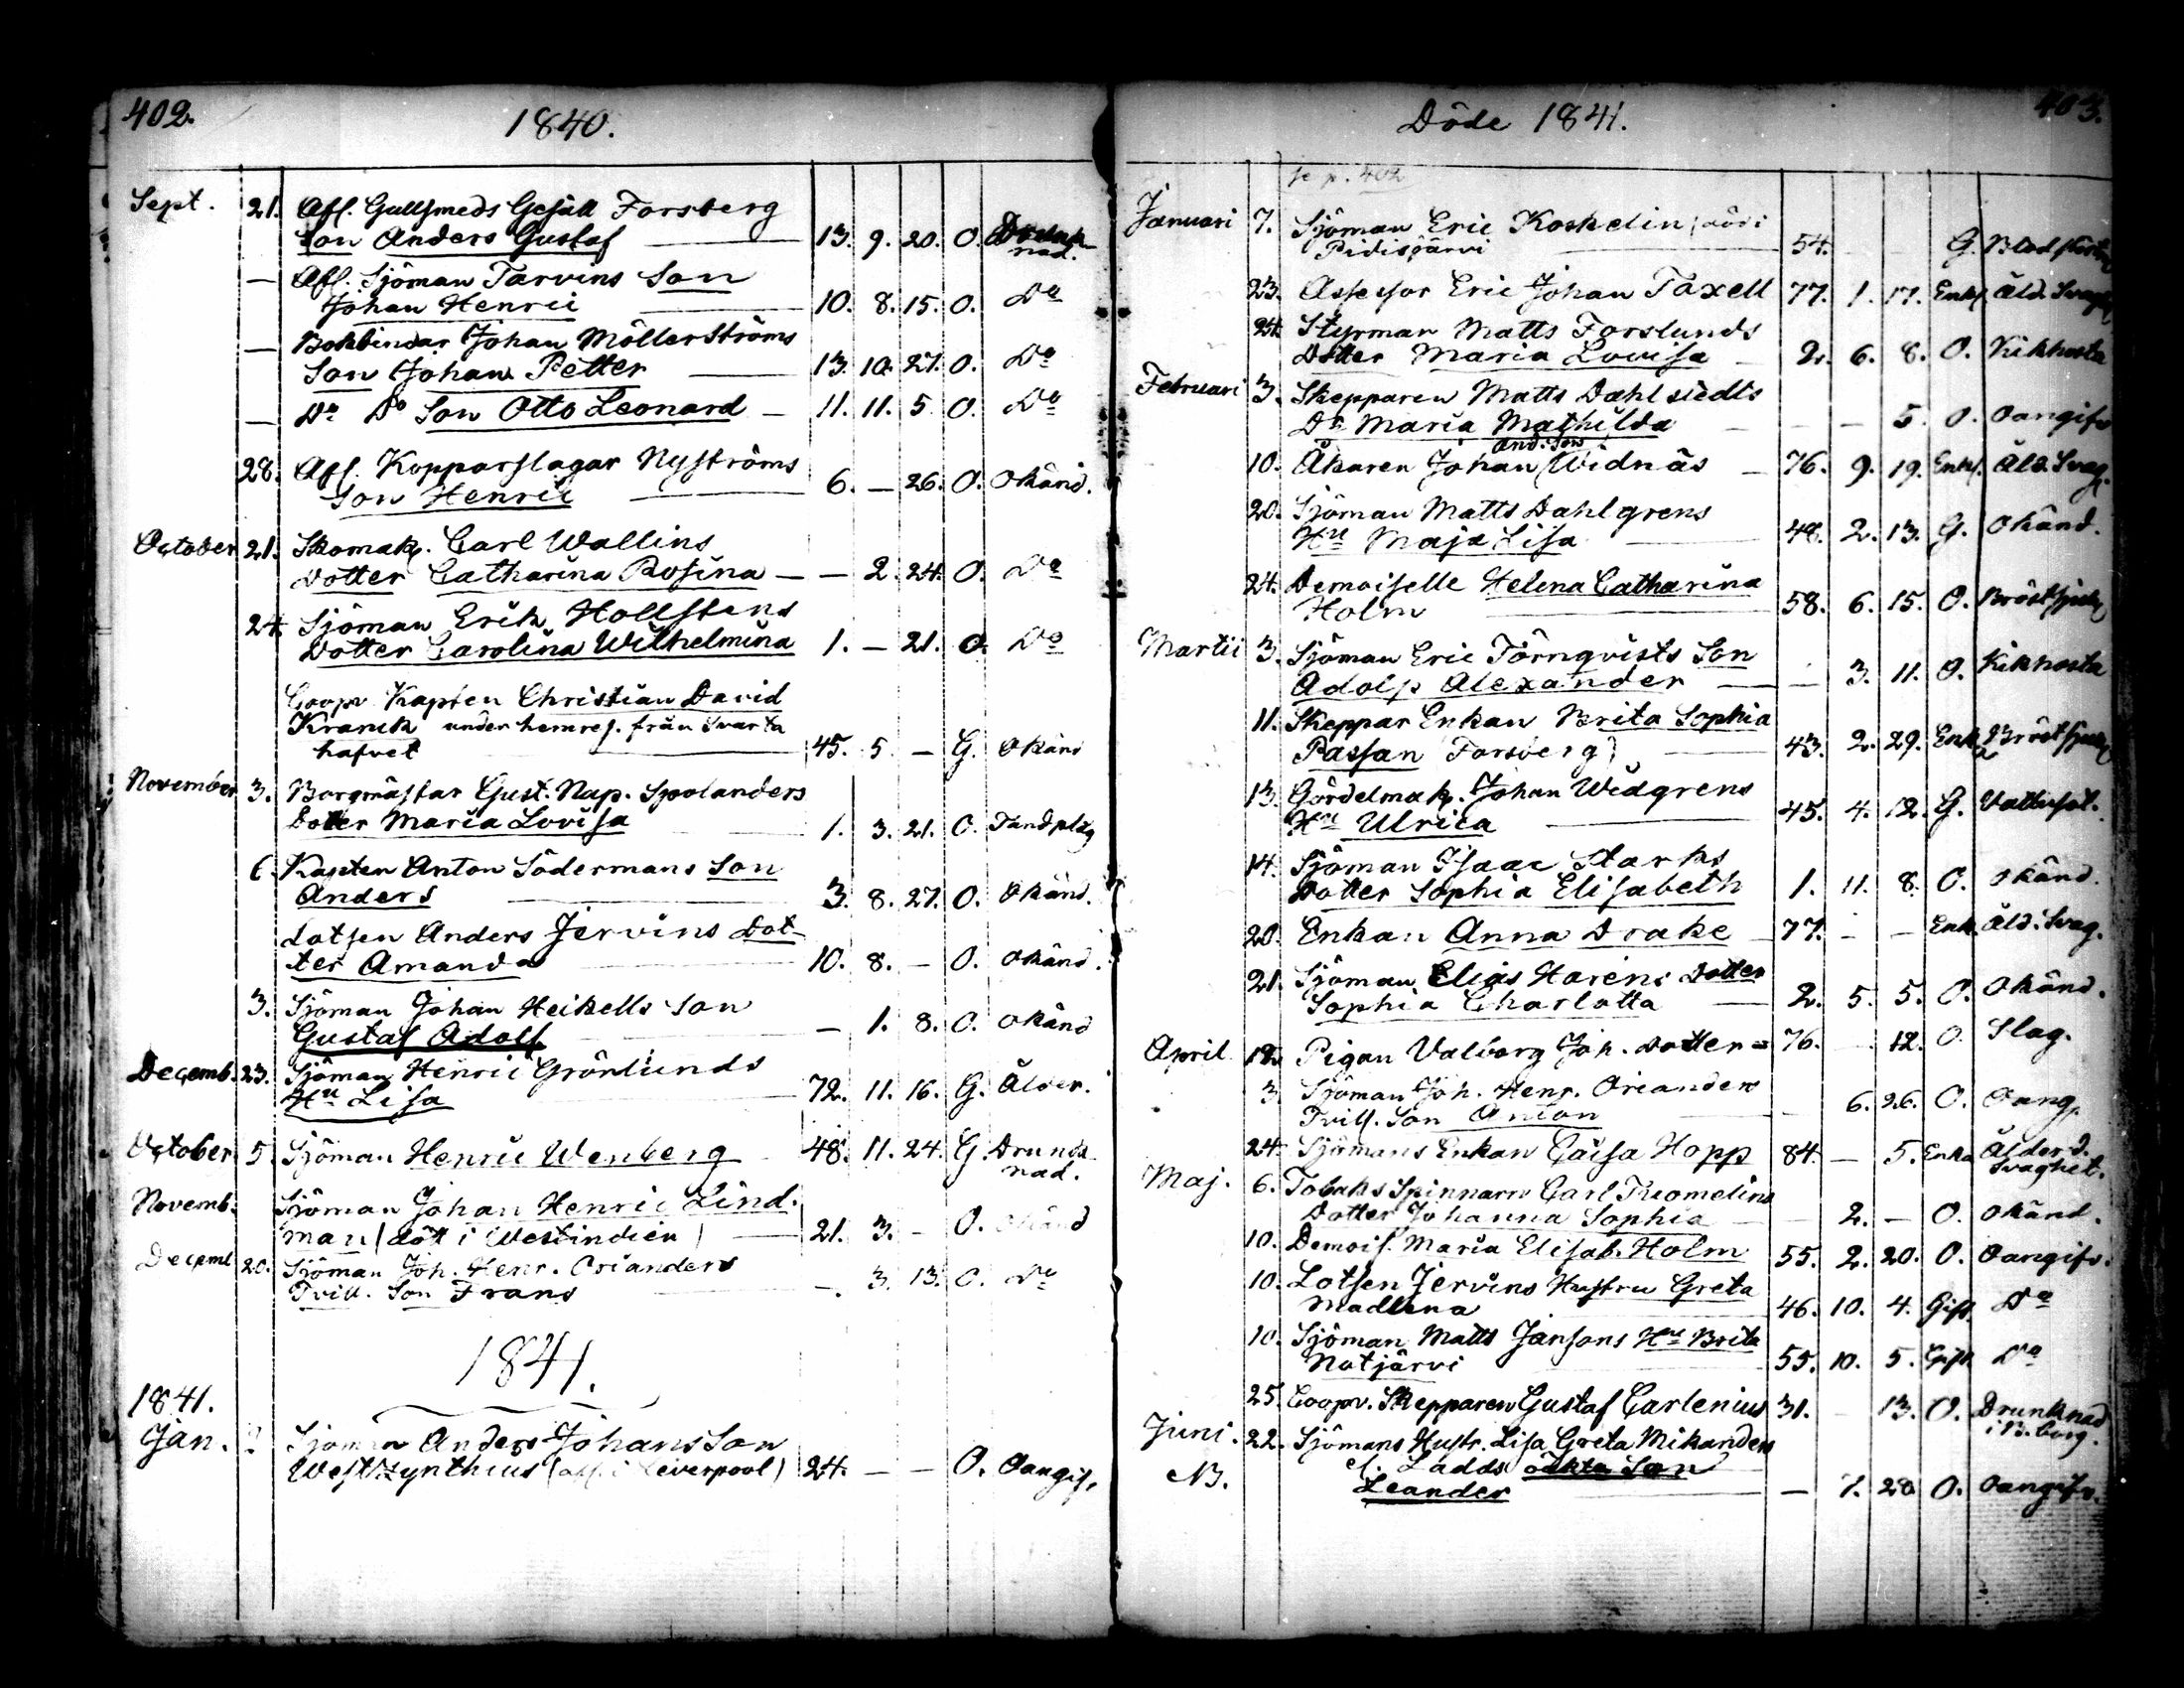 402.
1840.
Sept. 21. Afl. Gullsmeds Gesäll Forsberg
Son Anders Gustaf 13. 9. 20. O. Drunk-
nad.
— Afl. Sjöman Tarvins Son
Johan Henric 10. 8. 15. O. Do
— Bokbindar Johan Möllerströms
Son Johan Petter 13. 10. 27. O. Do
— Do Do Son Otto Leonard — 11. 11. 5. O. Do
28. Afl. Kopparslagar Nyströms
Son Henric 6. — 26. O. Okänd.
October 21. Skomak. Carl Wallins
Dotter Catharina Rosina — — 2. 24. O. Do
24. Sjöman Erik Hollstens
Dotter Carolina Wilhelmina 1. — 21. O. Do
Coopv. Kapten Christian David
Kranck under hemres. från Svarta
hafvet 45. 5. — G. Okänd
November 3. Borgmästar Gust. Nap. Spolanders
Dotter Maria Lovisa 1. 3. 21. O. Tandplåg
6. Kapten Anton Södermans Son
Anders 3. 8. 27. O. Okänd.
Lotsen Anders Jervins Dot-
ter Amanda 10. 8. — O. Okänd.
3. Sjöman Johan Heikells Son
Gustaf Adolf — 1. 8. O. Okänd
Decemb. 23. Sjöman Henric Grönlunds
Hu Lisa 72. 11. 16. G. Ålder.
October 5. Sjöman Henric Wenberg 48. 11. 24. G. Drunk-
nad.
Novemb. Sjöman Johan Henric Lind-
man (död i Westindien) 21. 3. — O. Okänd
Decemb 20. Sjöman Joh. Henr. Orianders
Tvill. Son Frans —. 3. 13. O. Do
1841.
1841.
Jan. Sjöman Anders Johansson
Westzynthius ( i Liverpool) 24. — — O. Oangif.
Döde 1841.
403.
se p. 402
Januari 7. Sjöman Eric Koskelin (död i
Pidisjärvi 54. G.
23. Assessor Eric Johan Taxell 77. 1. 17. Enkl. Åld. Svagh
24. Styrman Matts Forslunds
Dotter Maria Lovisa — 2. 6. 8. O. Kikhosta
Februari 3. Skepparen Matts Dahlstedts
Dr Maria Mathilda — — — 5. O. Oangifv
And. Son
10. Åkaren Johan (Widnäs — 76. 9. 19. Enkl. Åld. Svag.
20. Sjöman Matts Dahlgrens
Hu Maja Lisa 48. 2. 13. G. Okänd.
24. Demoiselle Helena Catharina
Holm 58. 6. 15. O. Bröstsjuk
Martii 3. Sjöman Eric Törnqvists Son
Adolp Alexander — — 3. 11. O. Kikhosta
11. Skeppar Enkan Brita Sophia
Passan Forsberg) 43. 2. 29. Enka Bröstsjuk
13. Gördelmak. Johan Widgrens
Hu Ulrica 45. 4. 12. G. Vattusot.
14. Sjöman Isaac Starks
Dotter Sophia Elisabeth 1. 11. 8. O. Okänd.
20. Enkan Anna Drake — 77. - — Enk. Åld. Svag.
21. Sjöman Elias Harens Dotter
Sophia Charlotta 2. 5. 5. O. Okänd.
April 12. Pigan Valborg Joh. Dotter = 76. 12. O. Slag.
3 Sjöman Joh. Henr. Orianders
Tvill. Son Anton 6. 26. O. Oang.
24. Sjömans Enkan Caisa Hopp 84. — 5. Enka Ålderd.
Svaghet.
Maj. 6. Tobaks Spinnarn Carl Tuomelins
Dotter Johanna Sophia — 2. — O. Okänd.
10. Demois. Maria Elisab. Holm 55. 2. 20. O. Oangifv.
10. Lotsen Jervins Hustru Greta
Madlena 46. 10. 4. Gift Do
10. Sjöman Matts Jansons Hu Brita
Notjärvi 55. 10. 5. Gift Do
25. Coopv. Skepparen Gustaf Carlenius 31. 13. O. Drunknad
Juni. 22. Sjömans Hustr. Lisa Greta Mikanders
NB. Ladds oäkta Son
Leander — 7. 28 O. Oangifv.